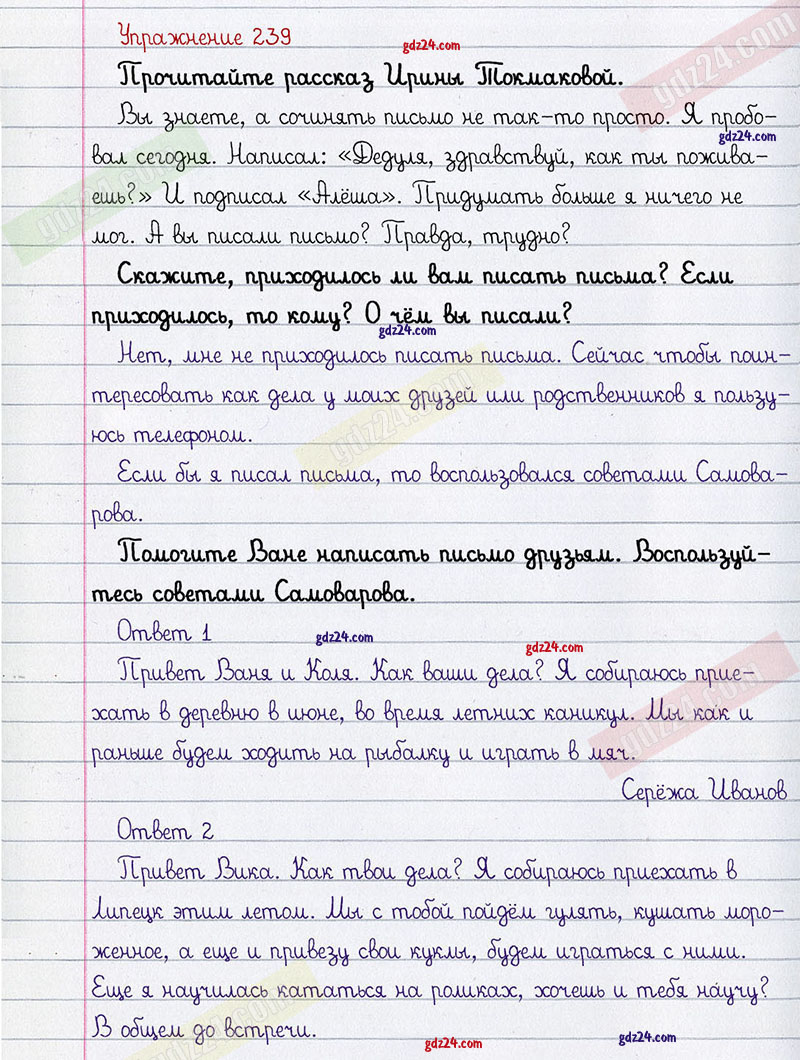 Упражнение 239
gdz24.com
gdz24.com
Прочитайте рассказ Ирины Токмаковой.
Вы знаете, а сочинять письмо не так-то просто. Я пробо-
gdz24.com
вал сегодня. Написал: «Дедуля, здравствуй, как ты пожива-
gdz24.com
ешь?» И подписал «Алёша». Придумать больше я ничего не
мог. А вы писали письмо? Правда, трудно?
Скажите, приходилось ли вам писать письма? Если
приходилось, то кому? О чём вы писали?
gdz24.com
Нет, мне не приходилось писать письма. Сейчас чтобы поин-
тересовать как дела у моих друзей или родственников я пользу-
gdz24.com
юсь телефоном.
Если бы я писал письма, то воспользовался советами Самова-
рова.
Помогите Ване написать письмо друзьям. Воспользуй-
тесь советами Самоварова.
Ответ 1
gdz24.com
gdz24.com
Привет Ваня и Коля. Как ваши дела? Я собираюсь прие-
хать в деревню в июне, во время летних каникул. Мы как и
gdz24.com
раньше будем ходить на рыбалку и играть в мяч.
Серёжа Иванов
Ответ 2
Привет Вика. Как твои дела? Я собираюсь приехать в
Липецк этим летом. Мы с тобой пойдём гулять, кушать моро-
женное, а еще и привезу свои куклы, будем играться с ними.
Еще я научилась кататься на роликах, хочешь и тебя научу?
В общем до встречи.
gdz24.com
gdz24.com
gdz24.com